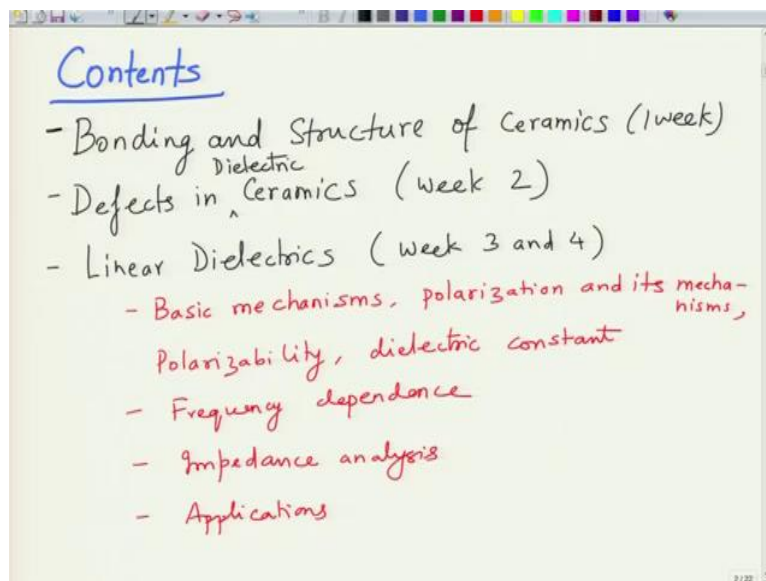 Contents
- Bonding and Structure of Ceramics (1 week)
Dielectric
- Defects in ^ Ceramics (week 2)
- Linear Dielectrics (week 3 and 4)
- Basic mechanisms, polarization and its mecha-
nisms,
Polarizability, dielectric constant
- Frequency dependence
- Impedance analysis
- Applications
2/22